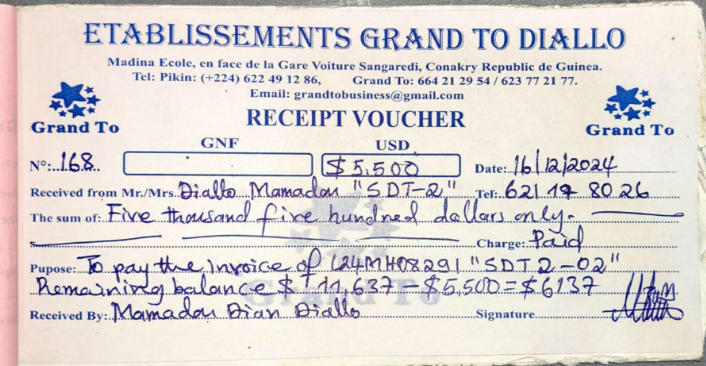 ETABLISSEMENTS GRAND TO DIALLO
Madina Ecole, en face de la Gare Voiture Sangaredi, Conakry Republic de Guinea.
Tel: Pikin: (+224) 622 49 12 86, Grand To: 664 21 29 54 / 623 77 21 77.
Email: grandtobusiness@gmail.com
Grand To RECEIPT VOUCHER Grand To
GNF USD
N°: 168 $5,500 Date: 16/12/2024
Received from Mr/Mrs. Diallo Mamadou "SDT-2" Tel: 621 19 80 26
The sum of: Five thousand five hundred dollars only.
Charge: Paid
Pupose: To pay the Invoice of L24MH08291 "SDT2-02"
Remaining balance $ 11,637 - $5,500 = $6137
Grand To
Received By: Mamadou Dian Diallo Signature